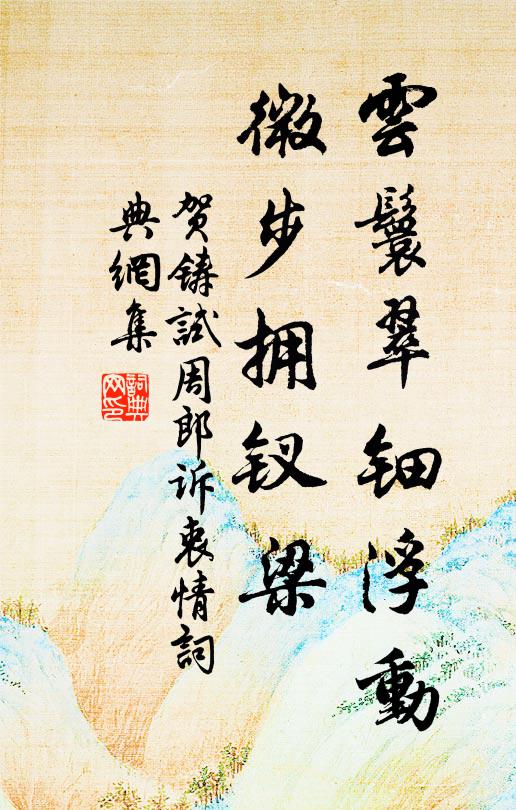 雲鬟翠钿浮動
微步拥钗梁
贺铸試周郎诉衷情詞
典網集
詞典网印